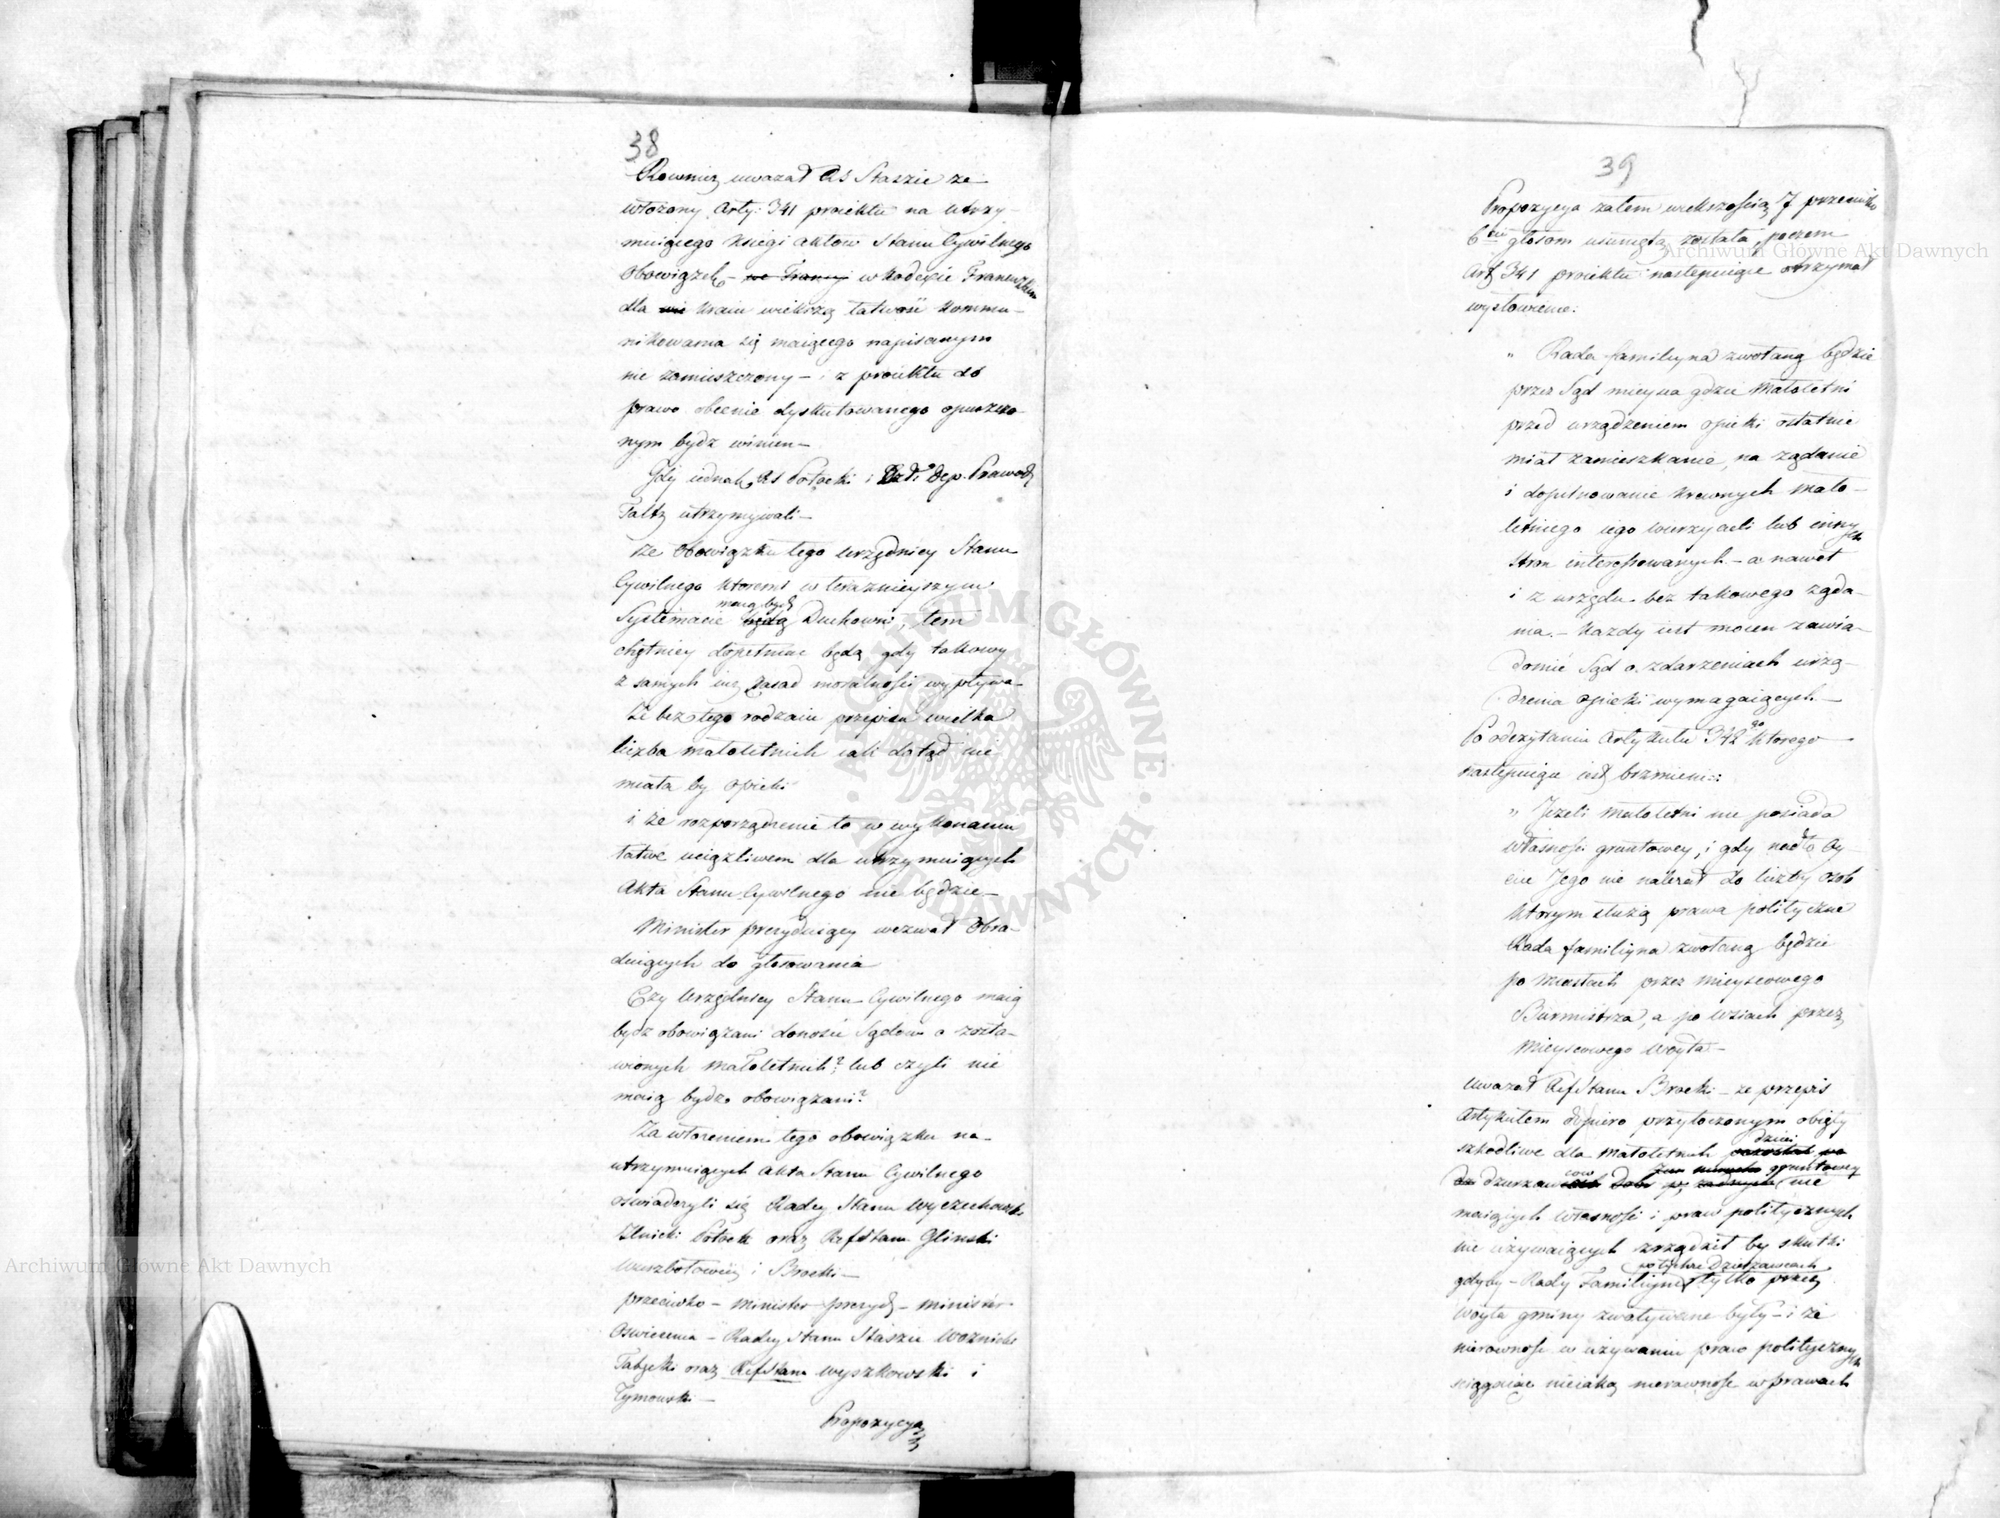 38
Rownież uwazał RS Staszic ze
włożony Arty: 341 proiektu na utrzy-
muiącego Księgi aktow Stanu Cywilnego
obowiązek – we Francyi w kodexie Francuzkim
dla nie kraiu większą łatwość kommu-
nikowania się maiącego napisanym
nie zamieszczony – i z proiektu do
prawa obecnie dyskutowanego opuszczo-
nym bydz winien –
Gdy iednak RS Potocki i Dep. Prawod
Faltz utrzymywali –
że obowiązku tego Urzędnicy Stanu
Cywilnego ktoremi w teraznieyszym
maią bydź
Systemacie będą Duchowni, tem
chętniey dopełniać będą gdy takowy
z samych iuż zasad moralności wypływa
że bez tego rodzaiu przepisu wielka
liczba małoletnich iak dotąd nie
miała by opieki
i że rozporządzenie to w wykonaniu
łatwe uciążliwem dla utrzymuiących
Akta Stanu Cywilnego nie będzie –
Minister prezyduiący wezwał Obra-
duiących do głosowania
Czy Urzędnicy Stanu Cywilnego maią
bydz obowiązani donosić Sądow o zosta-
wionych małoletnich? lub czyli nie
maią bydz obowiązani?
Za włożeniem tego obowiązku na
utrzymuiących Akta Stanu Cywilnego
oswiadczyli się Radcy Stanu Wyczechowski
Potocki oraz RefStanu Glinski
i Brocki –
przeciwko – Minister prezyd – minister
Oswiecenia – Radcy Stanu Staszic Woznicki
oraz RefStanu Wyszkowski i
Tymowski –
Propozycya
39
Propozycya zatem większością 7 przeciwko
6ciu głosom usuniętą została, poczem
Art 341 proiektu następuiące otrzymał
wysłowienie:
„ Rada familiyna zwołaną będzie
przez Sąd mieysca gdzie Małoletni
przed urządzeniem opieki ostatnie
miał zamieszkanie, na żądanie
i dopilnowanie krewnych mało-
letniego iego wierzycieli lub innych
stron interessowanych – a nawet
i z urzędu bez takowego żąda-
nia. – Kazdy iest mocen zawia-
domić Sąd o zdarzeniach urzą-
dzenia opieki wymagaiących –
Po odczytaniu Artykułu 342go ktorego
następuiące iest brzmienie:
„ Jezeli małoletni nie posiada
własności gruntowey, i gdy nadto Oy-
ciec Jego nie nalezał do liczby osob
ktorym służą prawa polityczne
Rada familiyna zwołaną będzie
po miastach przez mieyscowego
Burmistrza, a po wsiach przez
mieyscowego Woyta –
Uwazał RefStanu Brocki – ze przepis
Artykułem dopiero przytoczonym obięty
dzieci
szkodliwe dla małoletnich
cow gruntowey
dzierzaw nie
maiących własności i praw politycznych
nie używaiących zrządził by skutki
po tychże dzierzawcach
gdyby – Rady Familiyne tylko przez
Woyta gminy zwoływane były – i że
nierownosc w używaniu praw politycznych
sciągnie nieiaką nierownosc w prawach
Archiwum Główne Akt Dawnych
Archiwum Główne Akt Dawnych
ARCHIWUM GŁÓWNE AKT DAWNYCH